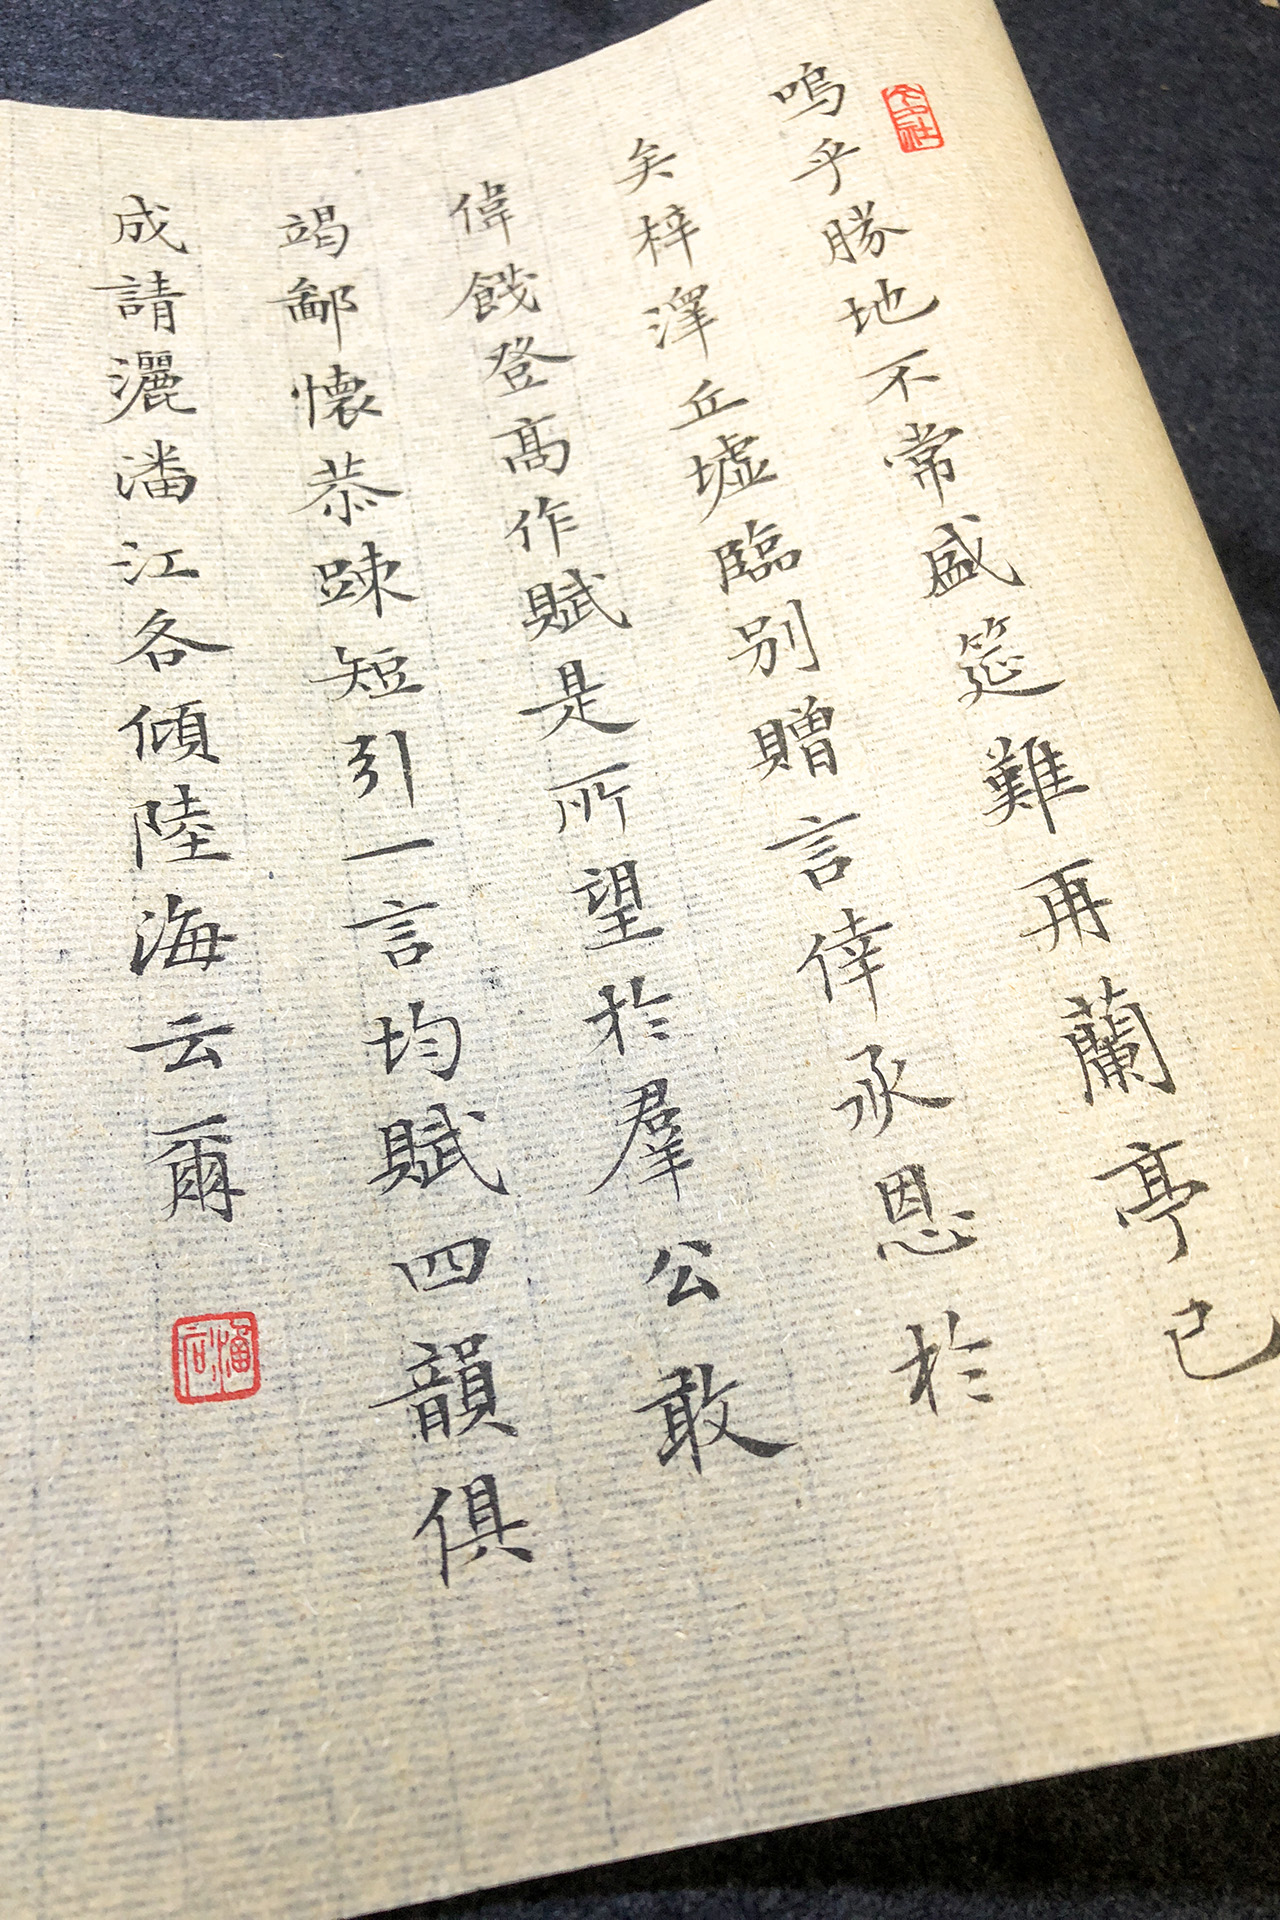 嗚乎勝地不常盛筵難再蘭亭已
矣梓澤丘墟臨別贈言倖承恩於
偉餞登高作賦是所望於羣公敢
竭鄙懷恭踈短引一言均賦四韻俱
成請灑潘江各傾陸海云爾